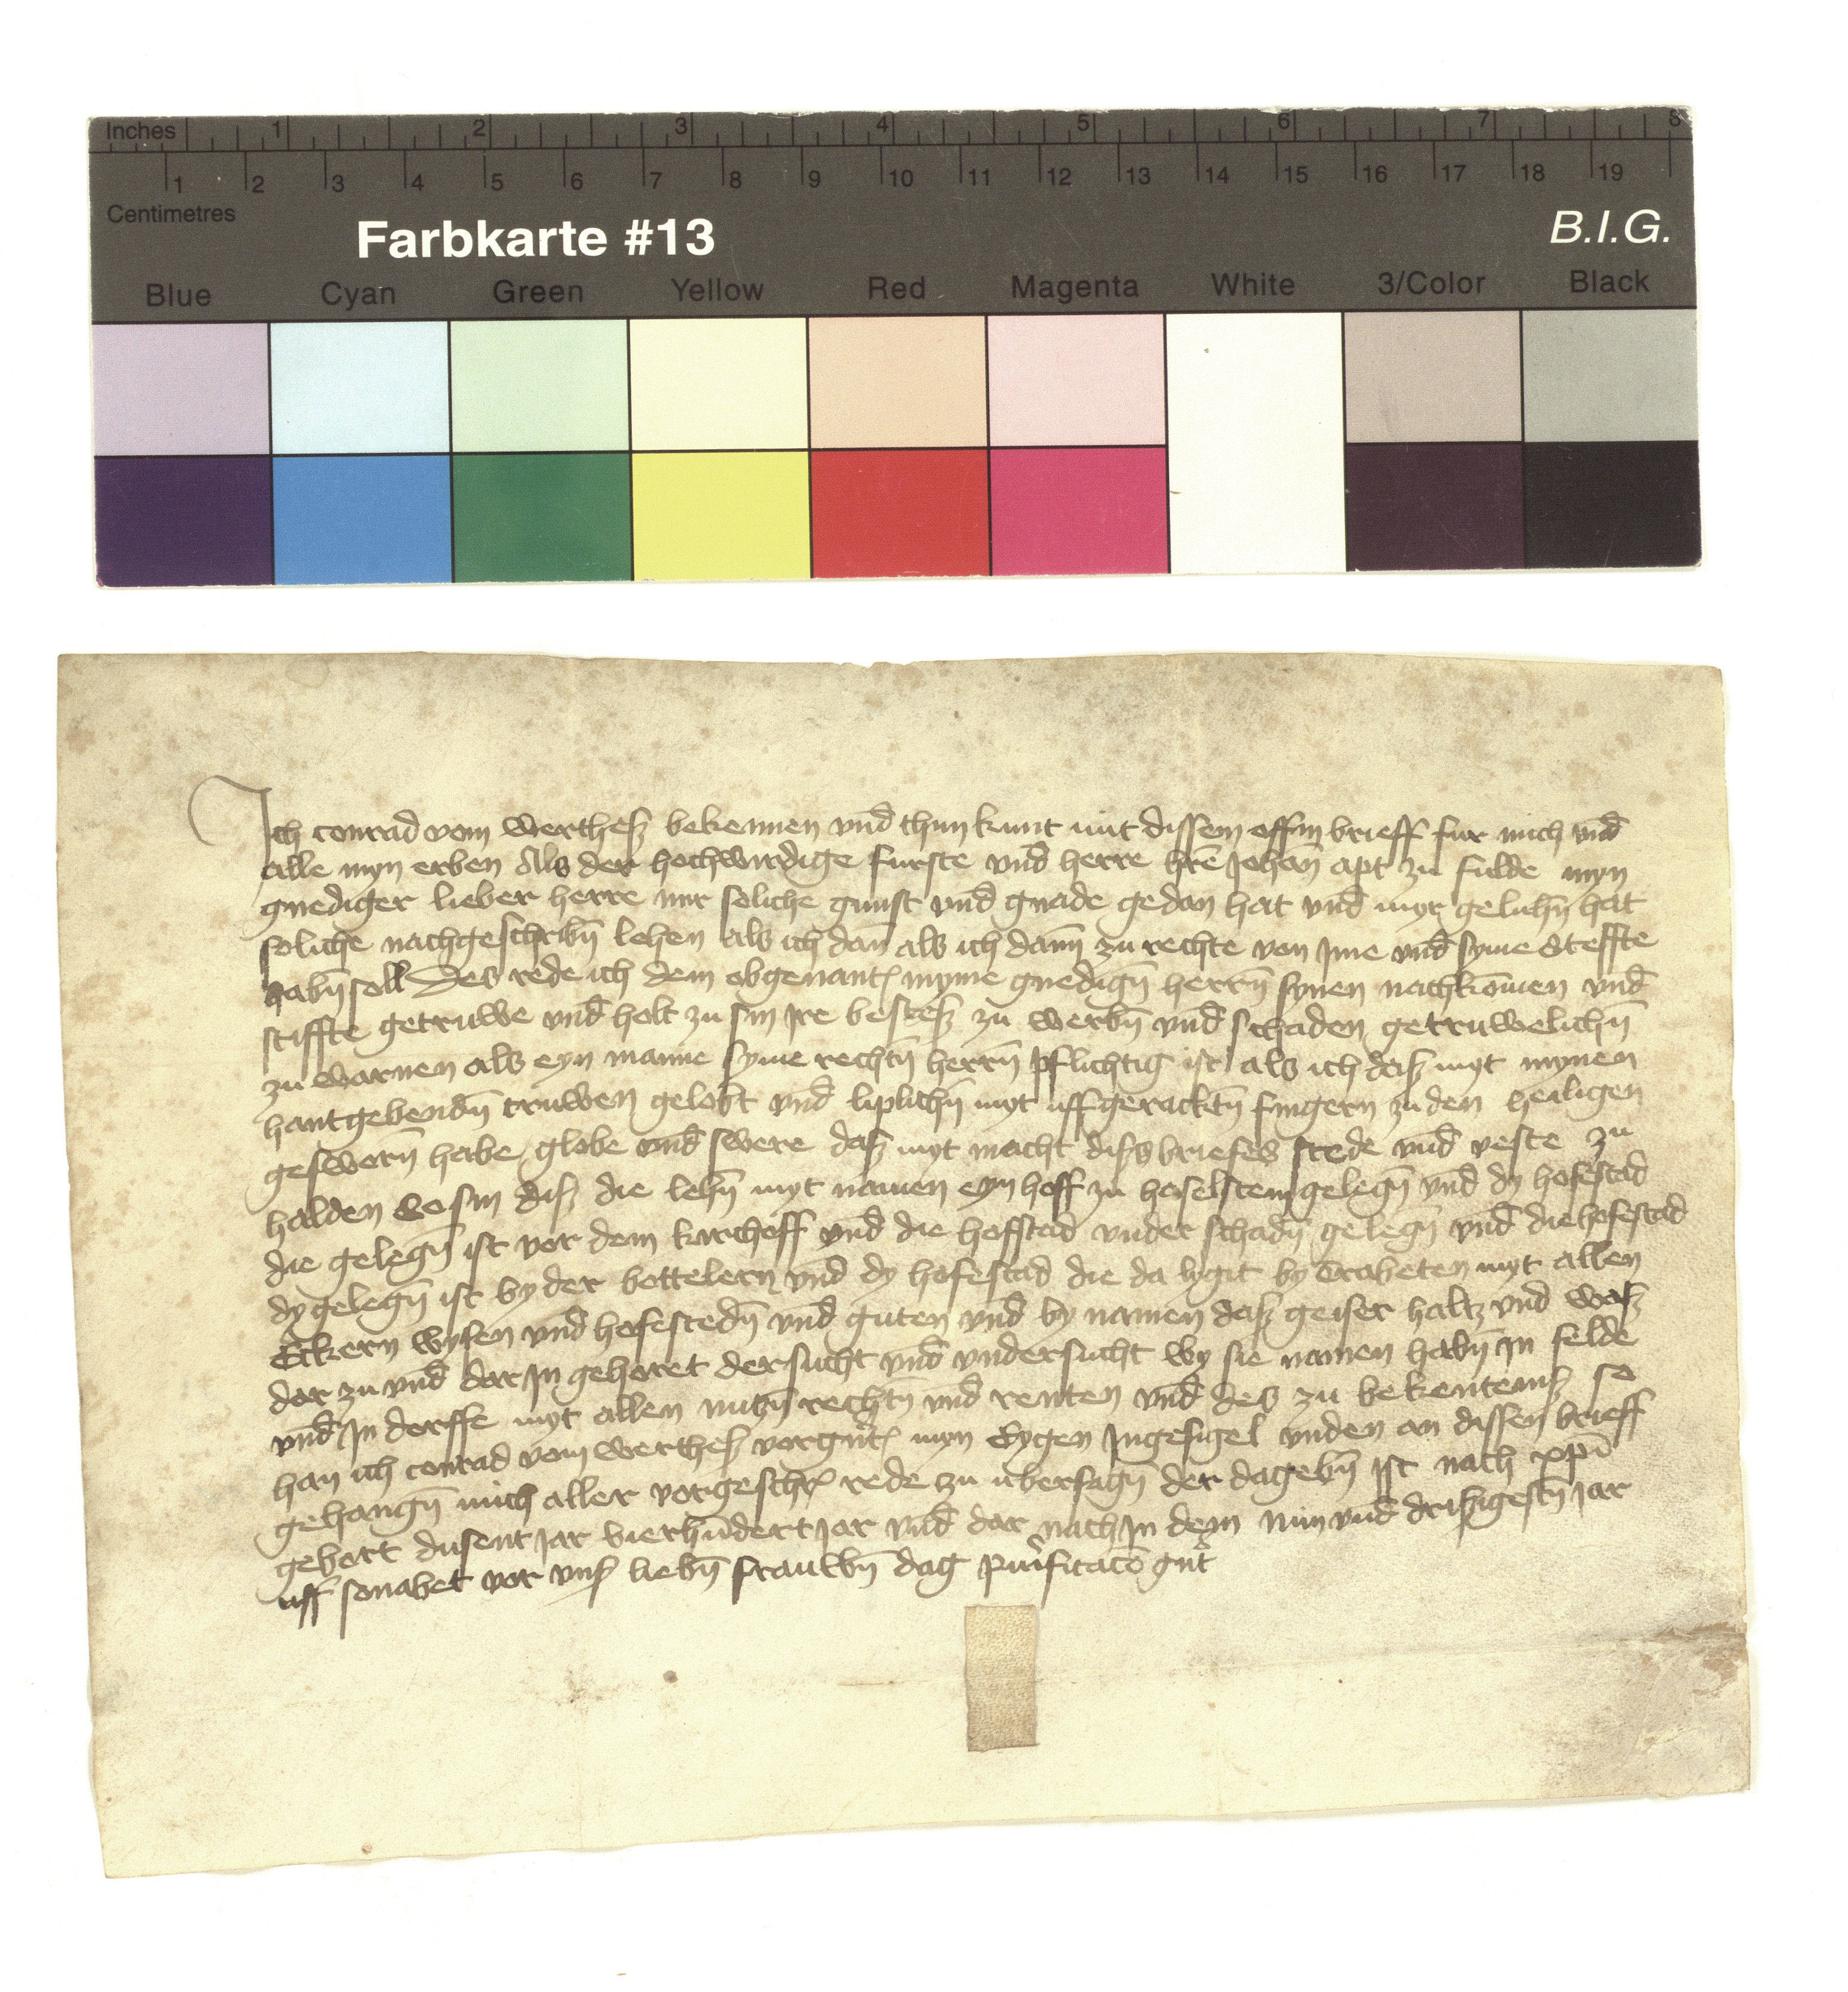 Inches 1 2 3 4 5 6 7 8
1 2 3 4 5 6 7 8 9 10 11 12 13 14 15 16 17 18 19
Centimetres
Farbkarte #13 B.I.G.
Blue Cyan Green Yellow Red Magenta White 3/Color Black
Ich conrad vom werthesz bekennen vnd̄ thun kunt mit dissem offin brieff fur mich vnd̄
alle myn erben Als der hochwirdige furste vnd̄ herre hr̄e Johan̄ apt zu fulde myn
gnediger lieber herre mir soliche gunst vnd̄ gnade gedan hat vnd̄ myr geluhn̄ hat
soliche nachgeschribn̄ lehen als ich dan̄ als ich dann̄ zu rechte von Jme vnd̄ syme Steffte
habn̄ soll Des rede ich dem obgenant̄ myme gnedign̄ herrn̄ synen nachkōmen vnd̄
stiffte getruwe vnd̄ holt zu sin Jre bestesz zu werbn̄ vnd̄ schaden getruwelichn̄
zu warnen als eyn manne syme rechtn̄ herrn̄ pflichtig ist als ich dasz myt mynen
hantgebendn̄ truwen gelobt vnd̄ liplichn̄ myt uffgeracktn̄ fingern zu den heiligen
gesworn̄ habe globe vnd̄ swere dasz myt macht diszs briefes stede vnd̄ veste zu
halden vo sin disz die lehn̄ myt namen eyn hoff zu haselstein gelegn̄ vnd̄ dy hofestad
die gelegn̄ ist vor dem kirchoff vnd̄ die hoffstad vnder schadn̄ gelegn̄ vnd̄ die hofestad
dy gelegn̄ ist by der bottelern vnd̄ dy hofestad die da lygit by Trabeten myt allen
Eckern wysen vnd̄ hofestedn̄ vnd̄ guten vnd̄ by namen dasz geiser haltz vnd̄ wasz
dar zu vnd̄ dar Jn gehoret dersucht vnd̄ vndersucht wy sie namen habn̄ Jn felde
vnd̄ Jn dorffe myt allen nutzn̄ rechtn̄ vnd̄ renten vnd̄ des zu bekentenisz so
han ich conrad vom werthesz vorgn̄t̄ myn Eygen Jngesigel vnden an dissen brieff
gehangn̄ mich aller vorgeschr̄ rede zu ubersagn̄ der da gebn̄ Jst nach xp̄i
gebort dusent Jar vierhūdert Jar vnd̄ dar nach Jn dem nun vnd̄ driszigestn̄ Jar
uff sonabet vor vnsz liebn̄ frauwn̄ dag purificatō gn̄t